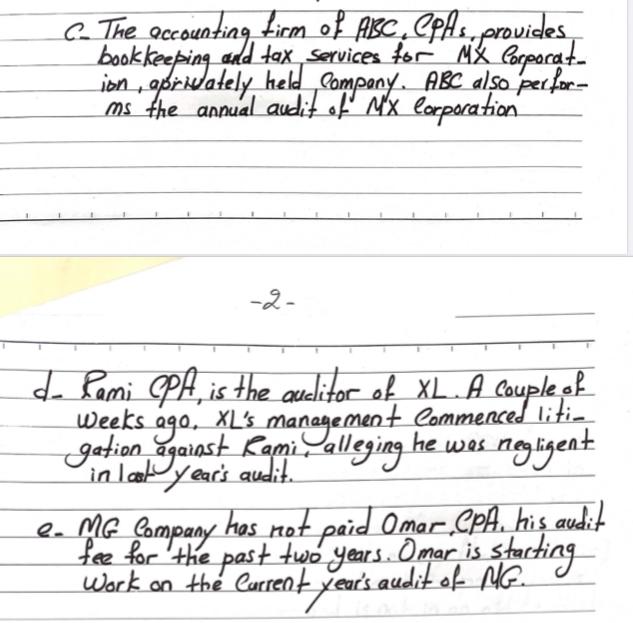 C- The accounting firm of ABC, CPAs, provides
bookkeeping and tax services for MX Corporat-
ion, aprivately held Company. ABC also perfor-
ms the annual audit of MX Corporation
-2-
d- Rami CPA, is the auditor of XL. A Couple of
Weeks ago, XL's management Commenced liti-
gation against Rami, alleging he was negligent
in last year's audit.
e- MG Company has not paid Omar, CPA. his audit
fee for the past two years. Omar is starting
Work on the Current year's audit of MG.